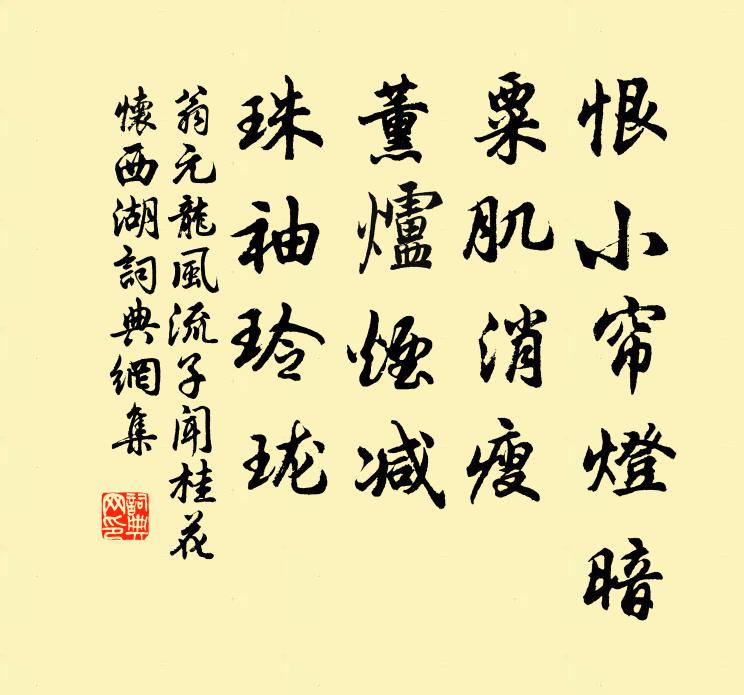 恨小帘燈暗
粟肌消瘦
薰爐煙减
珠袖玲珑
翁元龍風流子聞桂花
懷西湖詞典網集
詞典网印